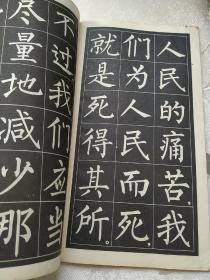 人民的痛苦，我
们为人民而死，
就是死得其所。
不过我们应当
尽量地减少那